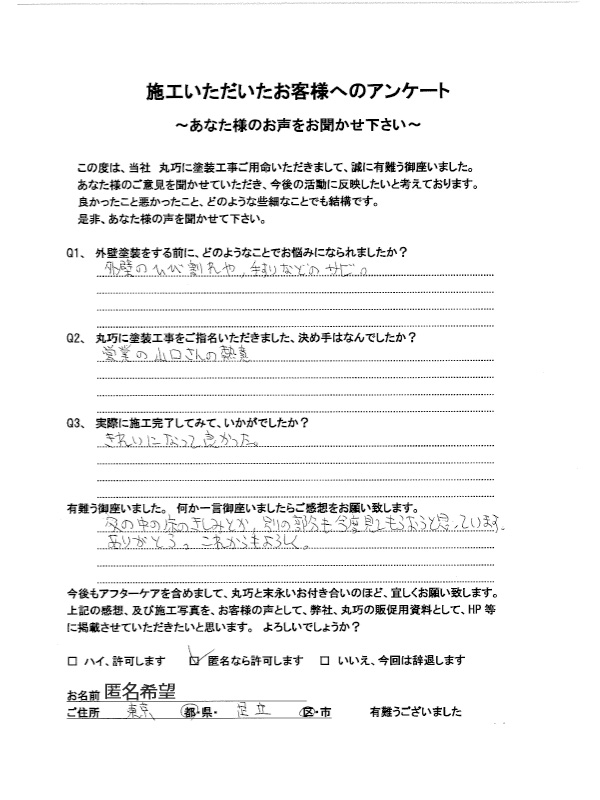 施工いただいたお客様へのアンケート
～あなた様のお声をお聞かせ下さい～
この度は、当社 丸巧に塗装工事ご用命いただきまして、誠に有難う御座いました。
あなた様のご意見を聞かせていただき、今後の活動に反映したいと考えております。
良かったこと悪かったこと、どのような些細なことでも結構です。
是非、あなた様の声を聞かせて下さい。
Q1、 外壁塗装をする前に、どのようなことでお悩みになられましたか？
外壁のひび割れや、手すりなどのサビ。
Q2、 丸巧に塗装工事をご指名いただきました、決め手はなんでしたか？
営業の山口さんの熱意
Q3、 実際に施工完了してみて、いかがでしたか？
きれいになって良かった。
有難う御座いました。 何か一言御座いましたらご感想をお願い致します。
家の中の床のきしみとか、別の部分も今度見てもらおうと思っています。
ありがとう。これからもよろしく。
今後もアフターケアを含めまして、丸巧と末永いお付き合いのほど、宜しくお願い致します。
上記の感想、及び施工写真を、お客様の声として、弊社、丸巧の販促用資料として、HP 等
に掲載させていただきたいと思います。 よろしいでしょうか？
□ ハイ、許可します ☑ 匿名なら許可します □ いいえ、今回は辞退します
お名前 匿名希望
ご住所 東京 都・県・ 足立 区・市 有難うございました